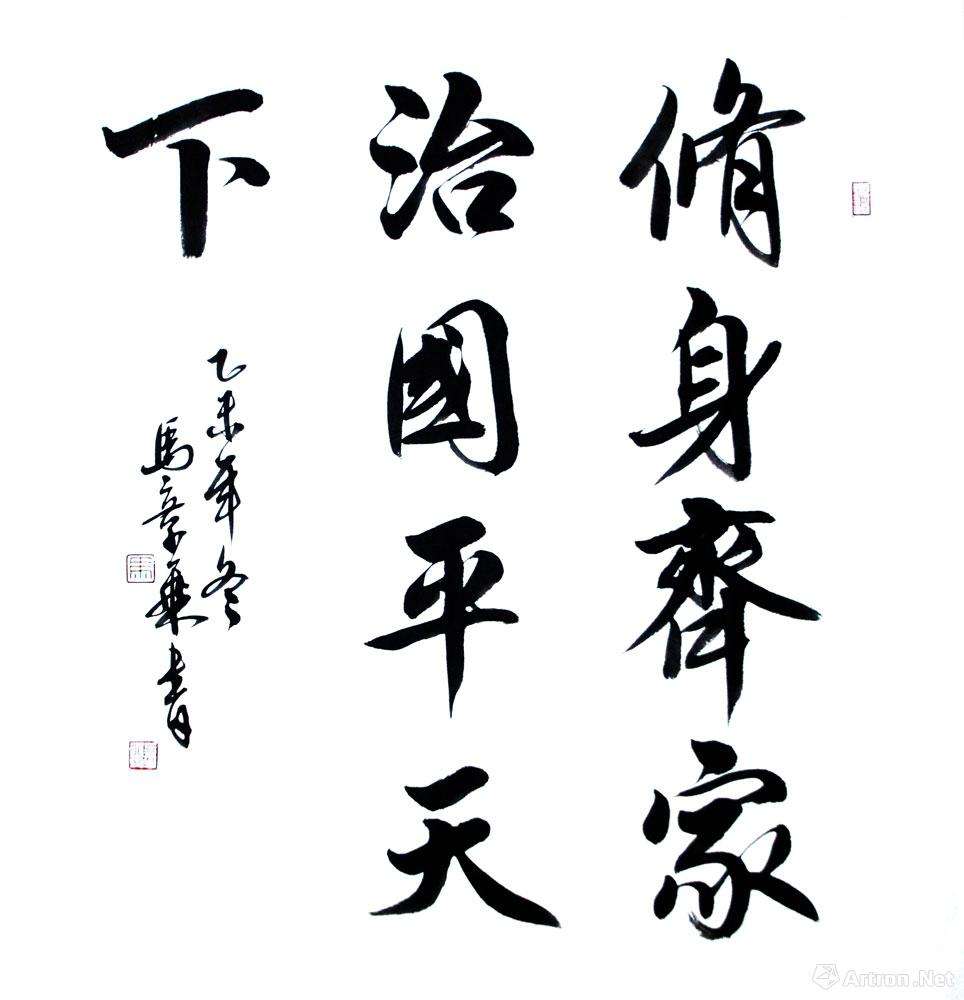 脩身齊家
治國平天
下
乙未年冬
馬章乗書
Artron.Net